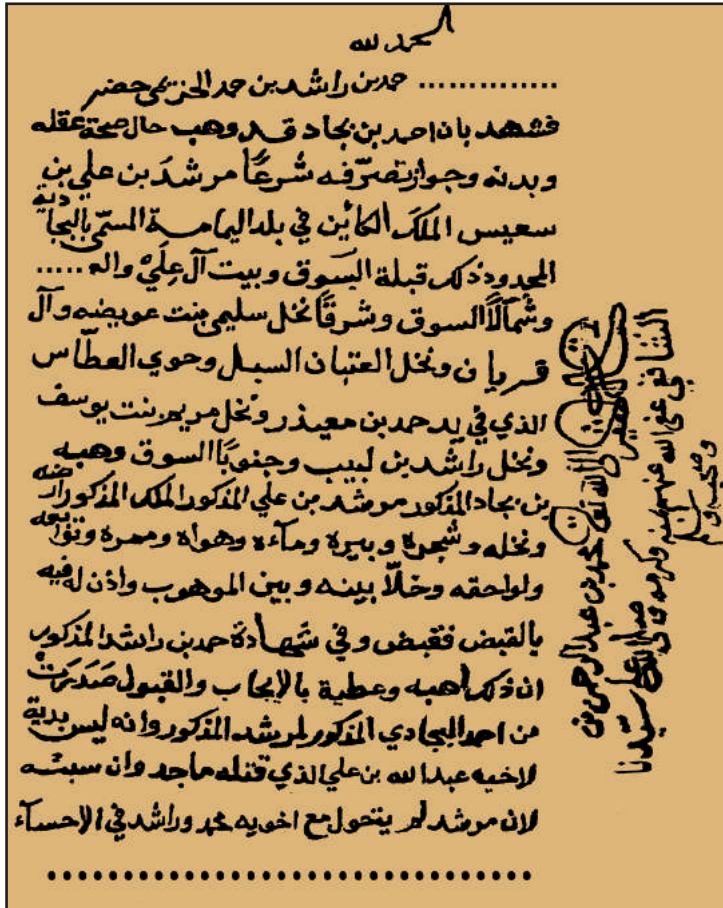 الحمد لله
.............. حمد بن راشد بن حمد الخزيمي حضر
فشهد بان احمد بن بجاد قد وهب حال صحة عقله
وبدنه وجواز تصرّفه شرعًا مرشد بن علي بن
سعيس الملك الكائن في بلد اليمامة المسمّى بالبجادية
المحدود ذلك قبلة السوق وبيت آل علي واله .....
وشمالًا السوق وشرقًا نخل سليمى بنت عويضه وآل
قريان ونخل العتبان السبل وحوي العطّاس
الذي في يد حمد بن معيذر ونخل مريم بنت يوسف
ونخل راشد بن لبيب وجنوبًا السوق وهبه
بن بجاد المذكور مرشد بن علي المذكور الملك المذكور ارضه
ونخله وشجره وبيره ومآءه وهواه وممره وتوابعه
ولواحقه وخلّا بينه وبين الموهوب واذن له فيه
بالقبض فقبض وفي شهادة حمد بن راشد المذكور
ان ذلك هبه وعطية بالإيجاب والقبول صدرت
من احمد البجادي المذكور لمرشد المذكور وانه ليس بدية
لاخيه عبدالله بن علي الذي قتله ماجد وان سببه
لان مرشد لم يتحول مع اخويه محمد وراشد في الإحساء
..............................
الى الله تعالى محمد بن عبدالرحمن بن
الشافعي عفى الله عنهم بمنه وكرمه
صلى الله على سيدنا
وصحبه و